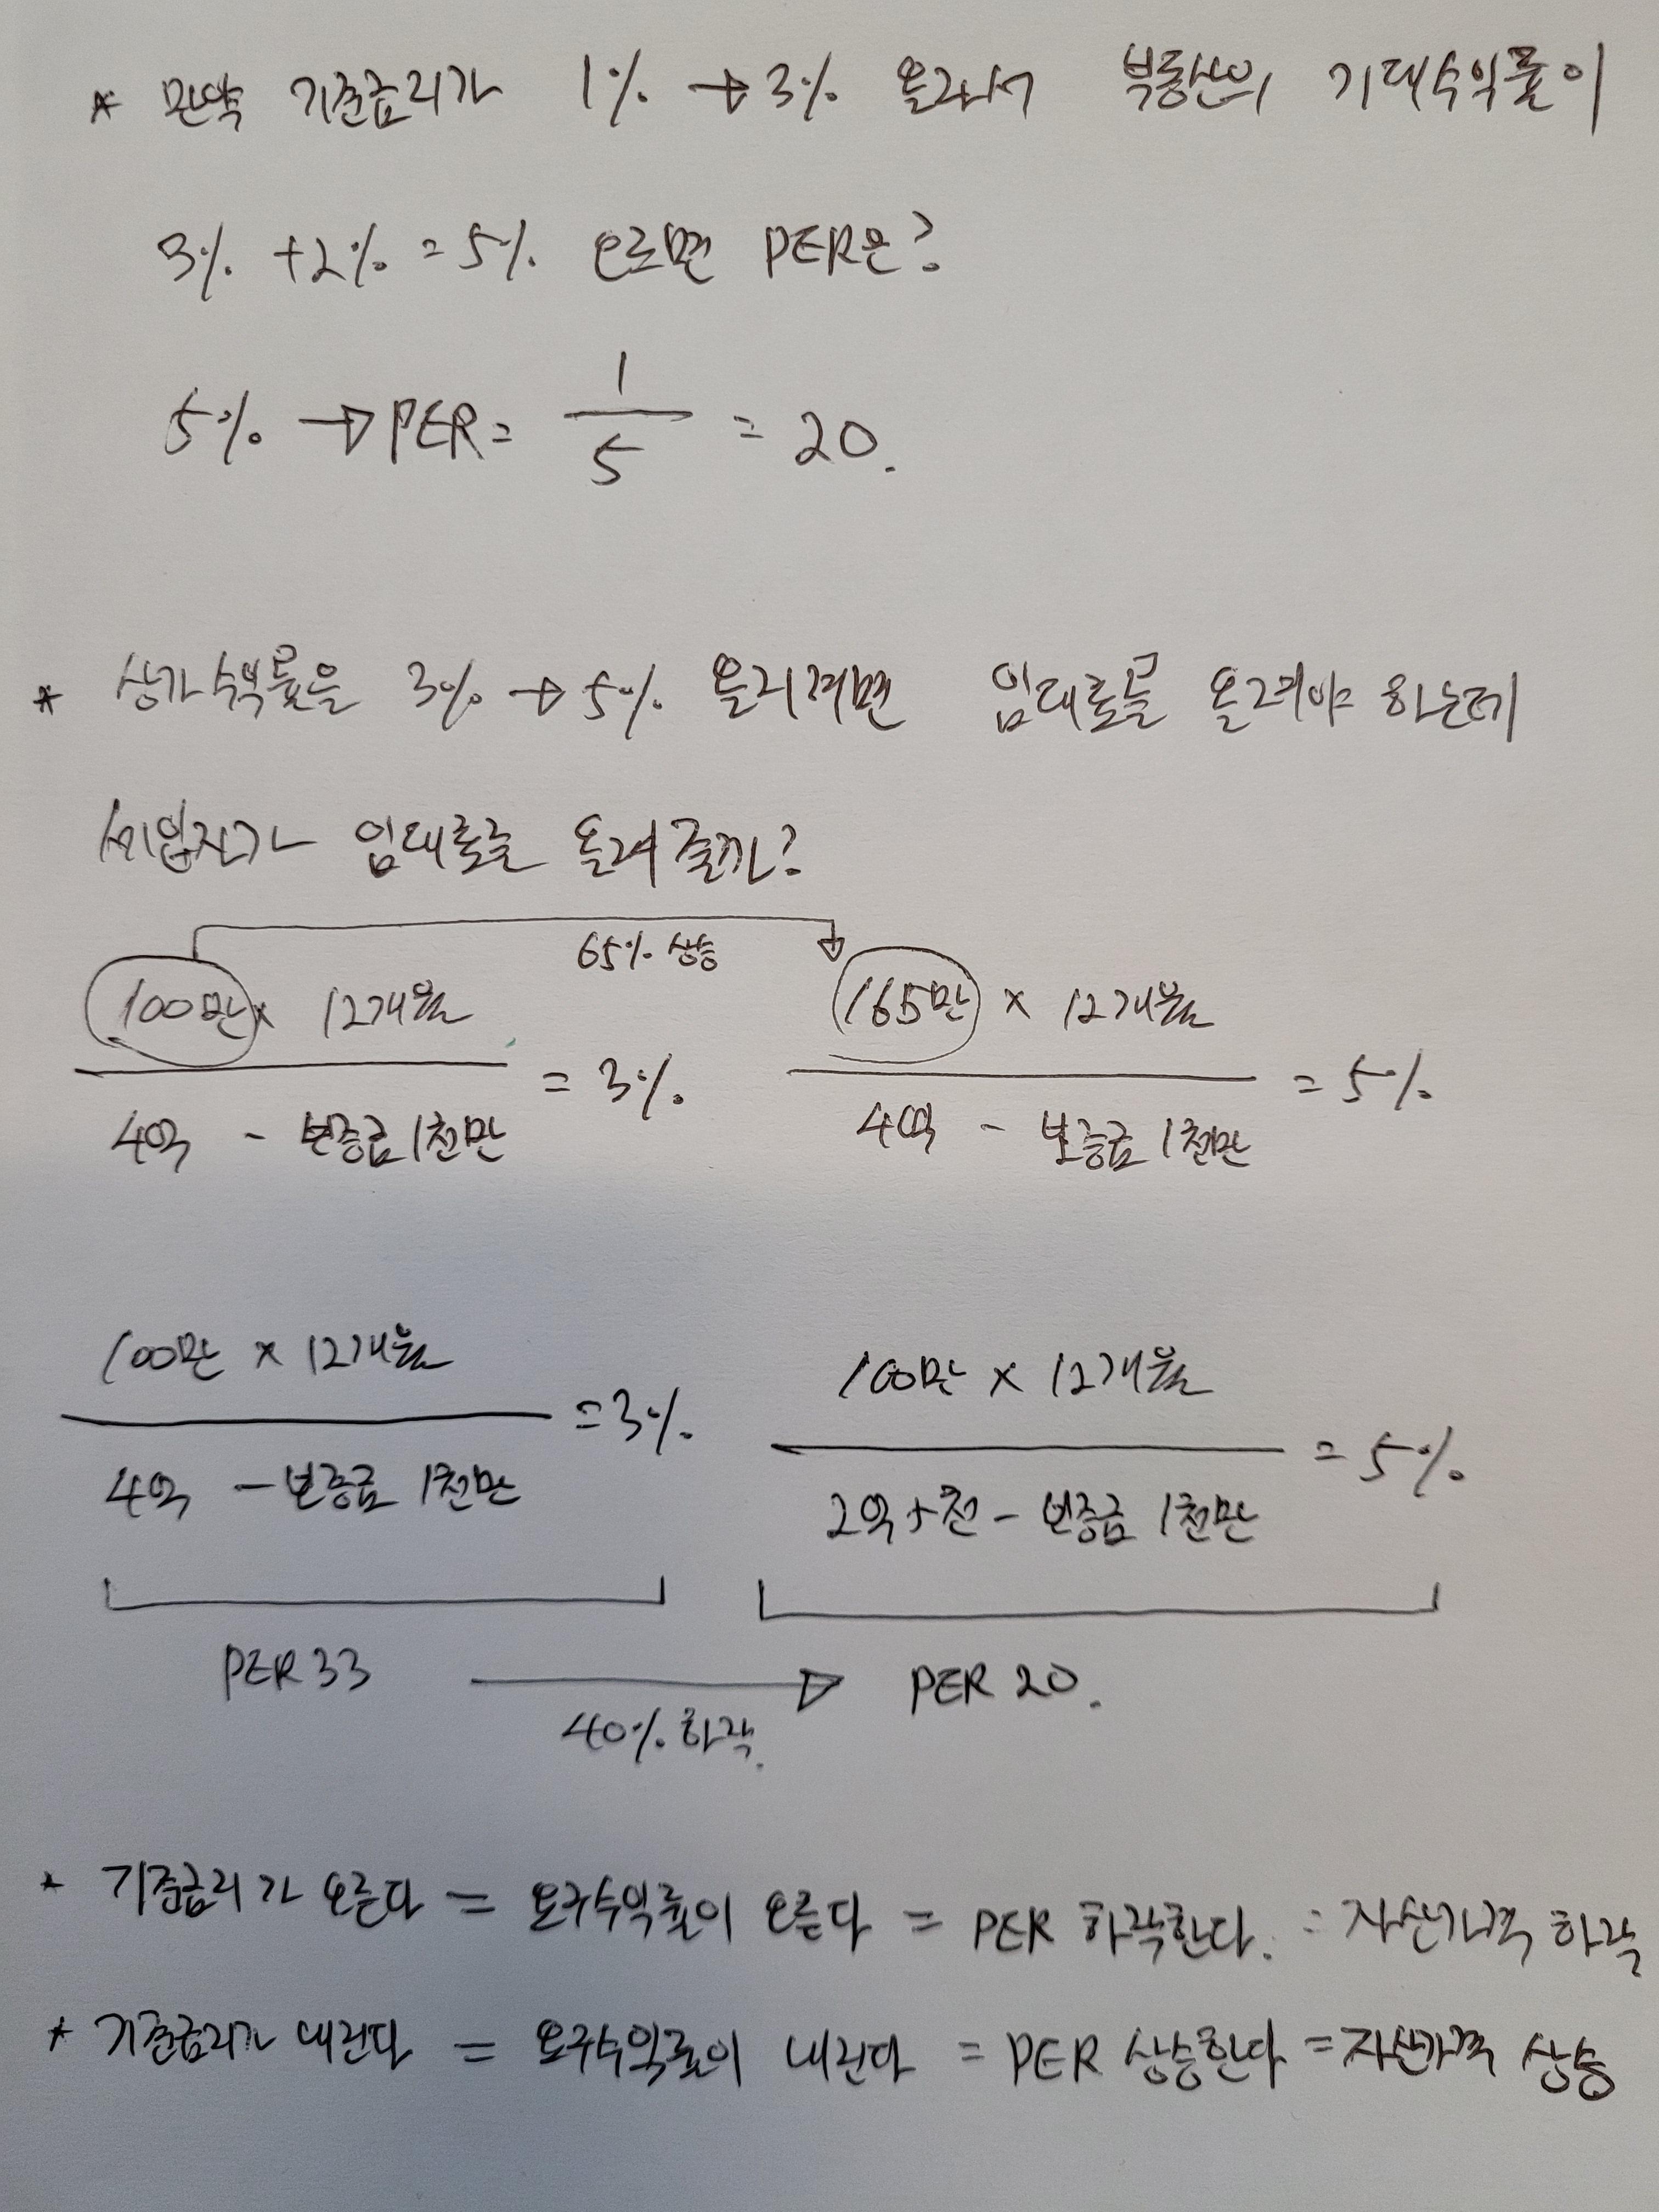 * 만약 기준금리가 1% → 3% 올라서 부동산의 기대수익률이
3% + 2% = 5% 오르면 PER은?
5% → PER = 1/5 = 20.
* 상가수익률을 3% → 5% 올리려면 임대료를 올려야 하는데
세입자가 임대료를 올려줄까?
65% 상승
100만 x 12개월 / 4억 - 보증금 1천만 = 3%
165만 x 12개월 / 4억 - 보증금 1천만 = 5%
100만 x 12개월 / 4억 - 보증금 1천만 = 3%
100만 x 12개월 / 2억5천 - 보증금 1천만 = 5%
PER 33 → PER 20.
40% 하락.
* 기준금리가 오른다 = 요구수익률이 오른다 = PER 하락한다. = 자산가격 하락
* 기준금리가 내린다 = 요구수익률이 내린다 = PER 상승한다 = 자산가격 상승